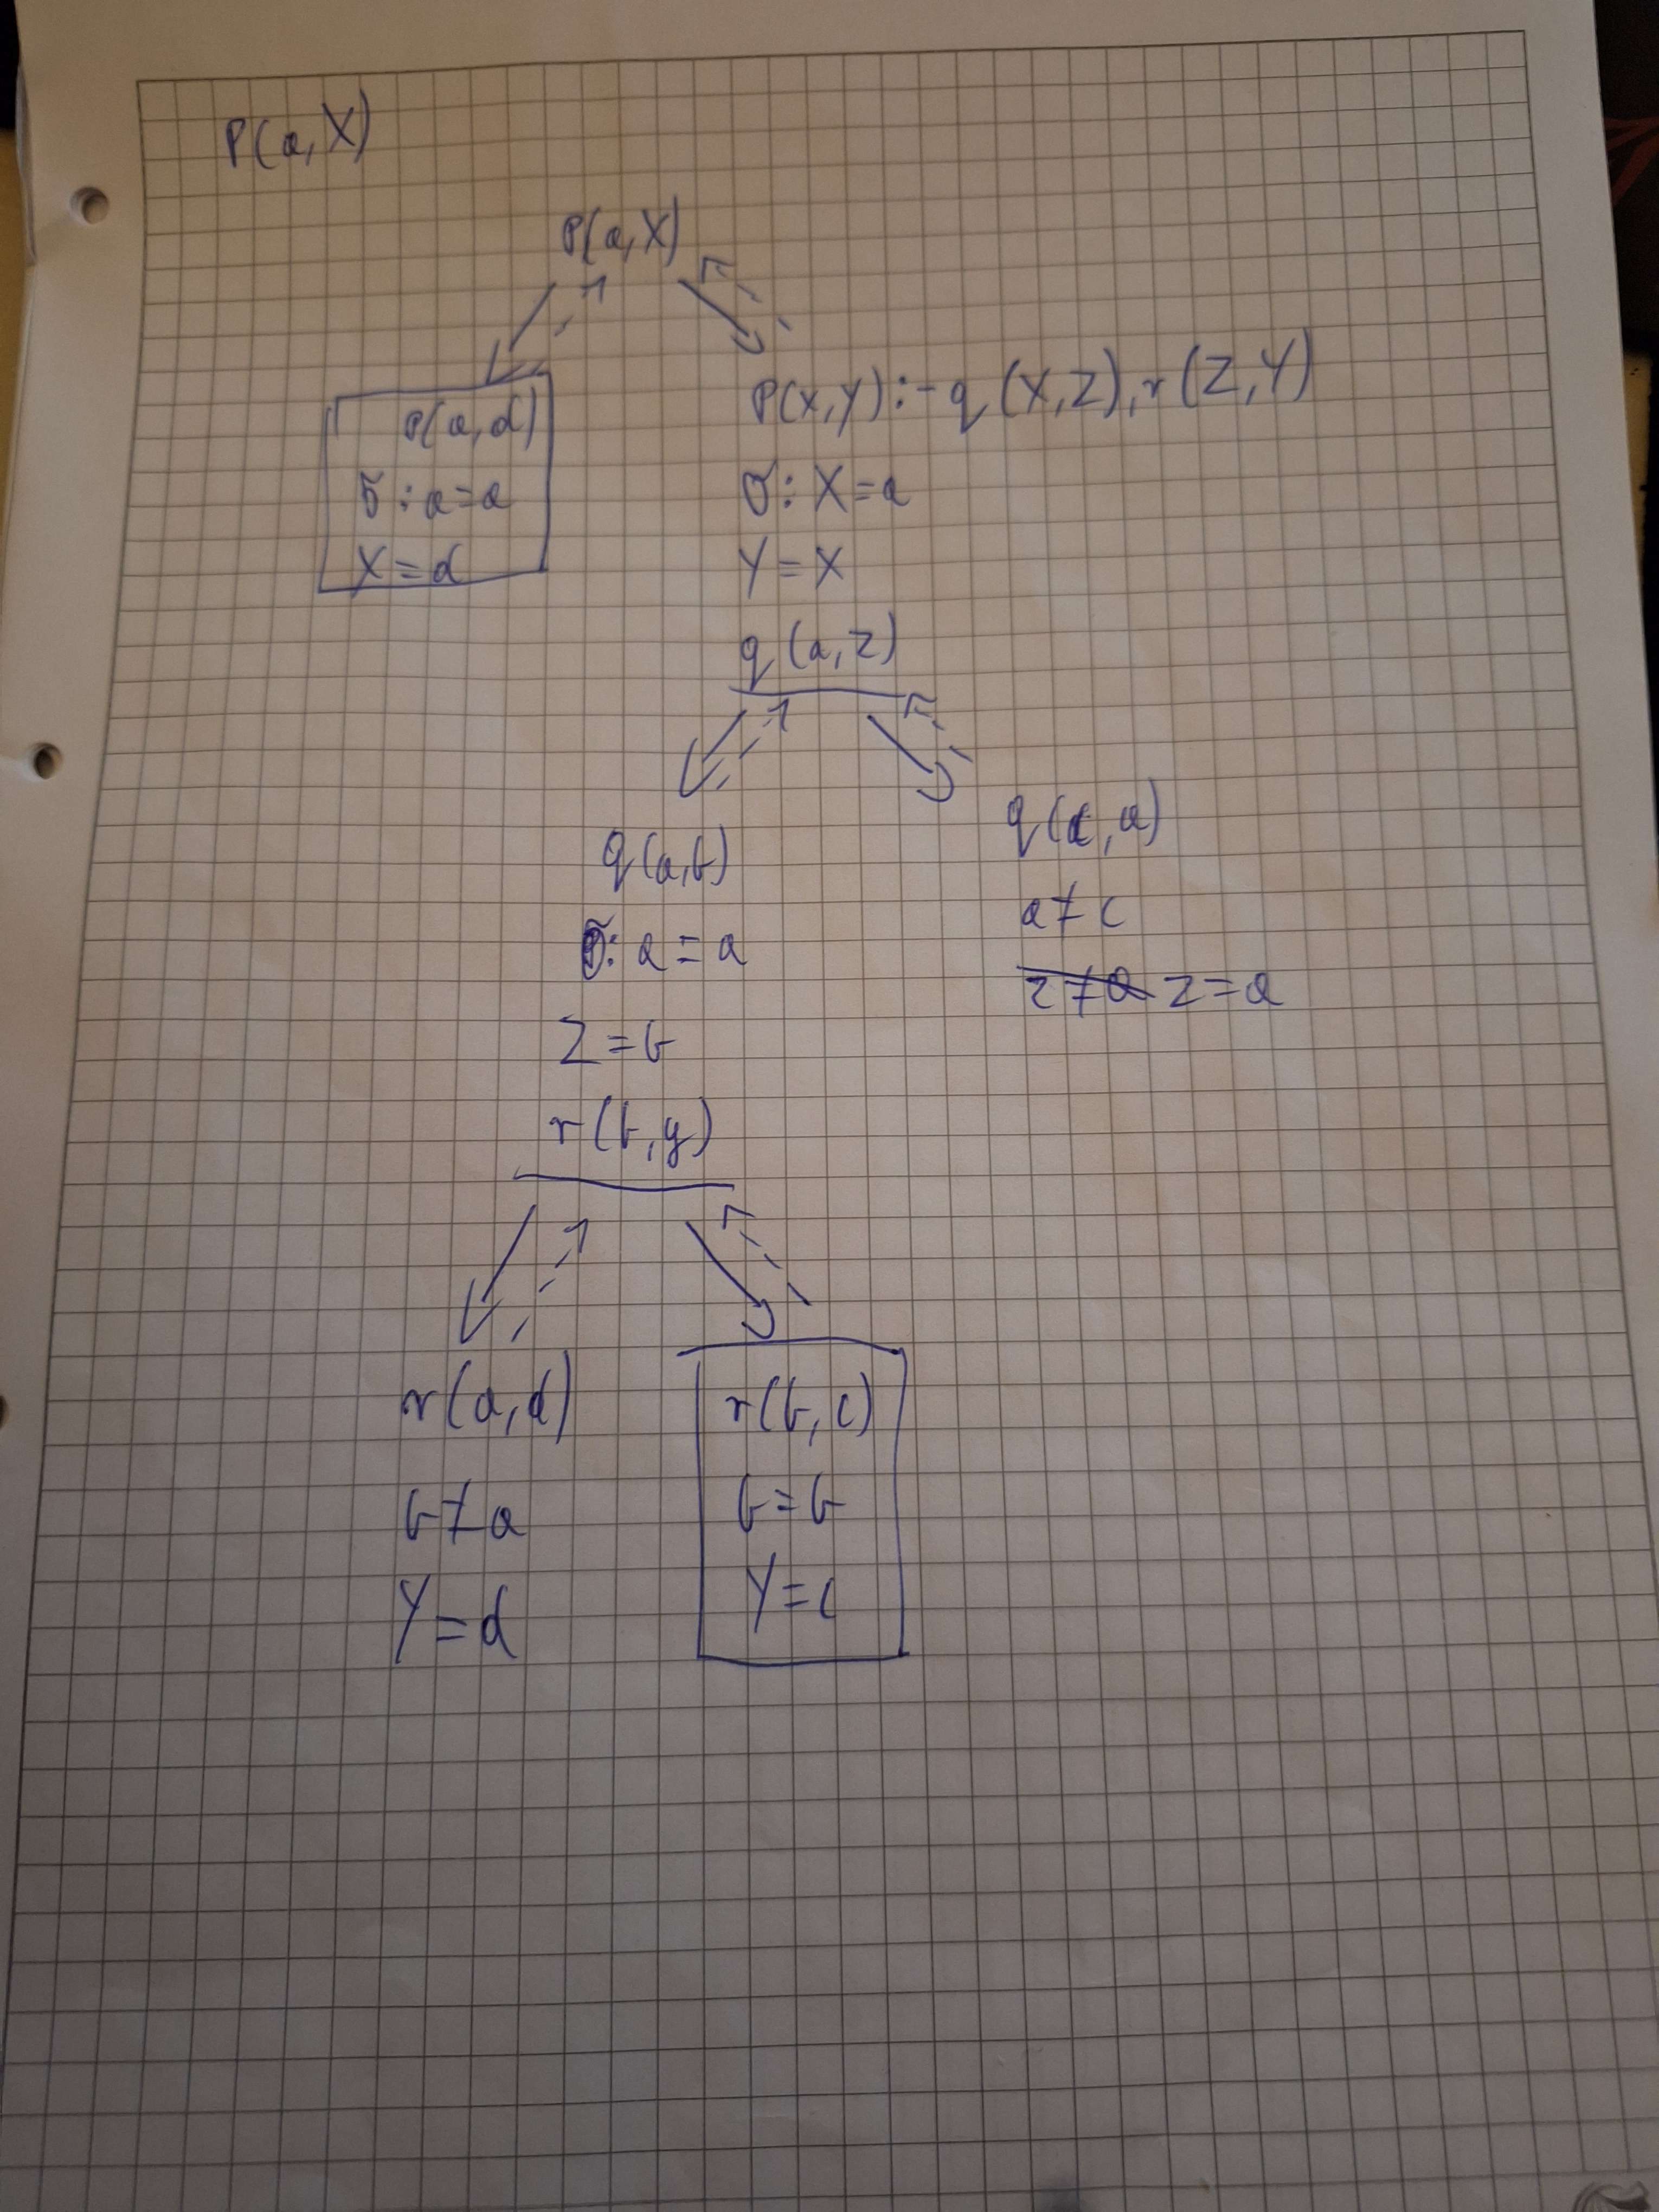 P(a,X)
P(a,X)
P(a,d)
σ: a=a
X=d
P(X,Y):-q(X,Z),r(Z,Y)
σ: X=a
Y=X
q(a,Z)
q(a,b)
σ: a=a
Z=b
q(c,a)
a≠c
z≠a z=a
r(b,y)
r(a,d)
b≠a
Y=d
r(b,c)
b=b
Y=c